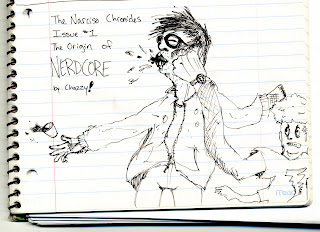 The Narciso Chronicles
Issue #1
The Origin of
NERDCORE
by Chazzy!